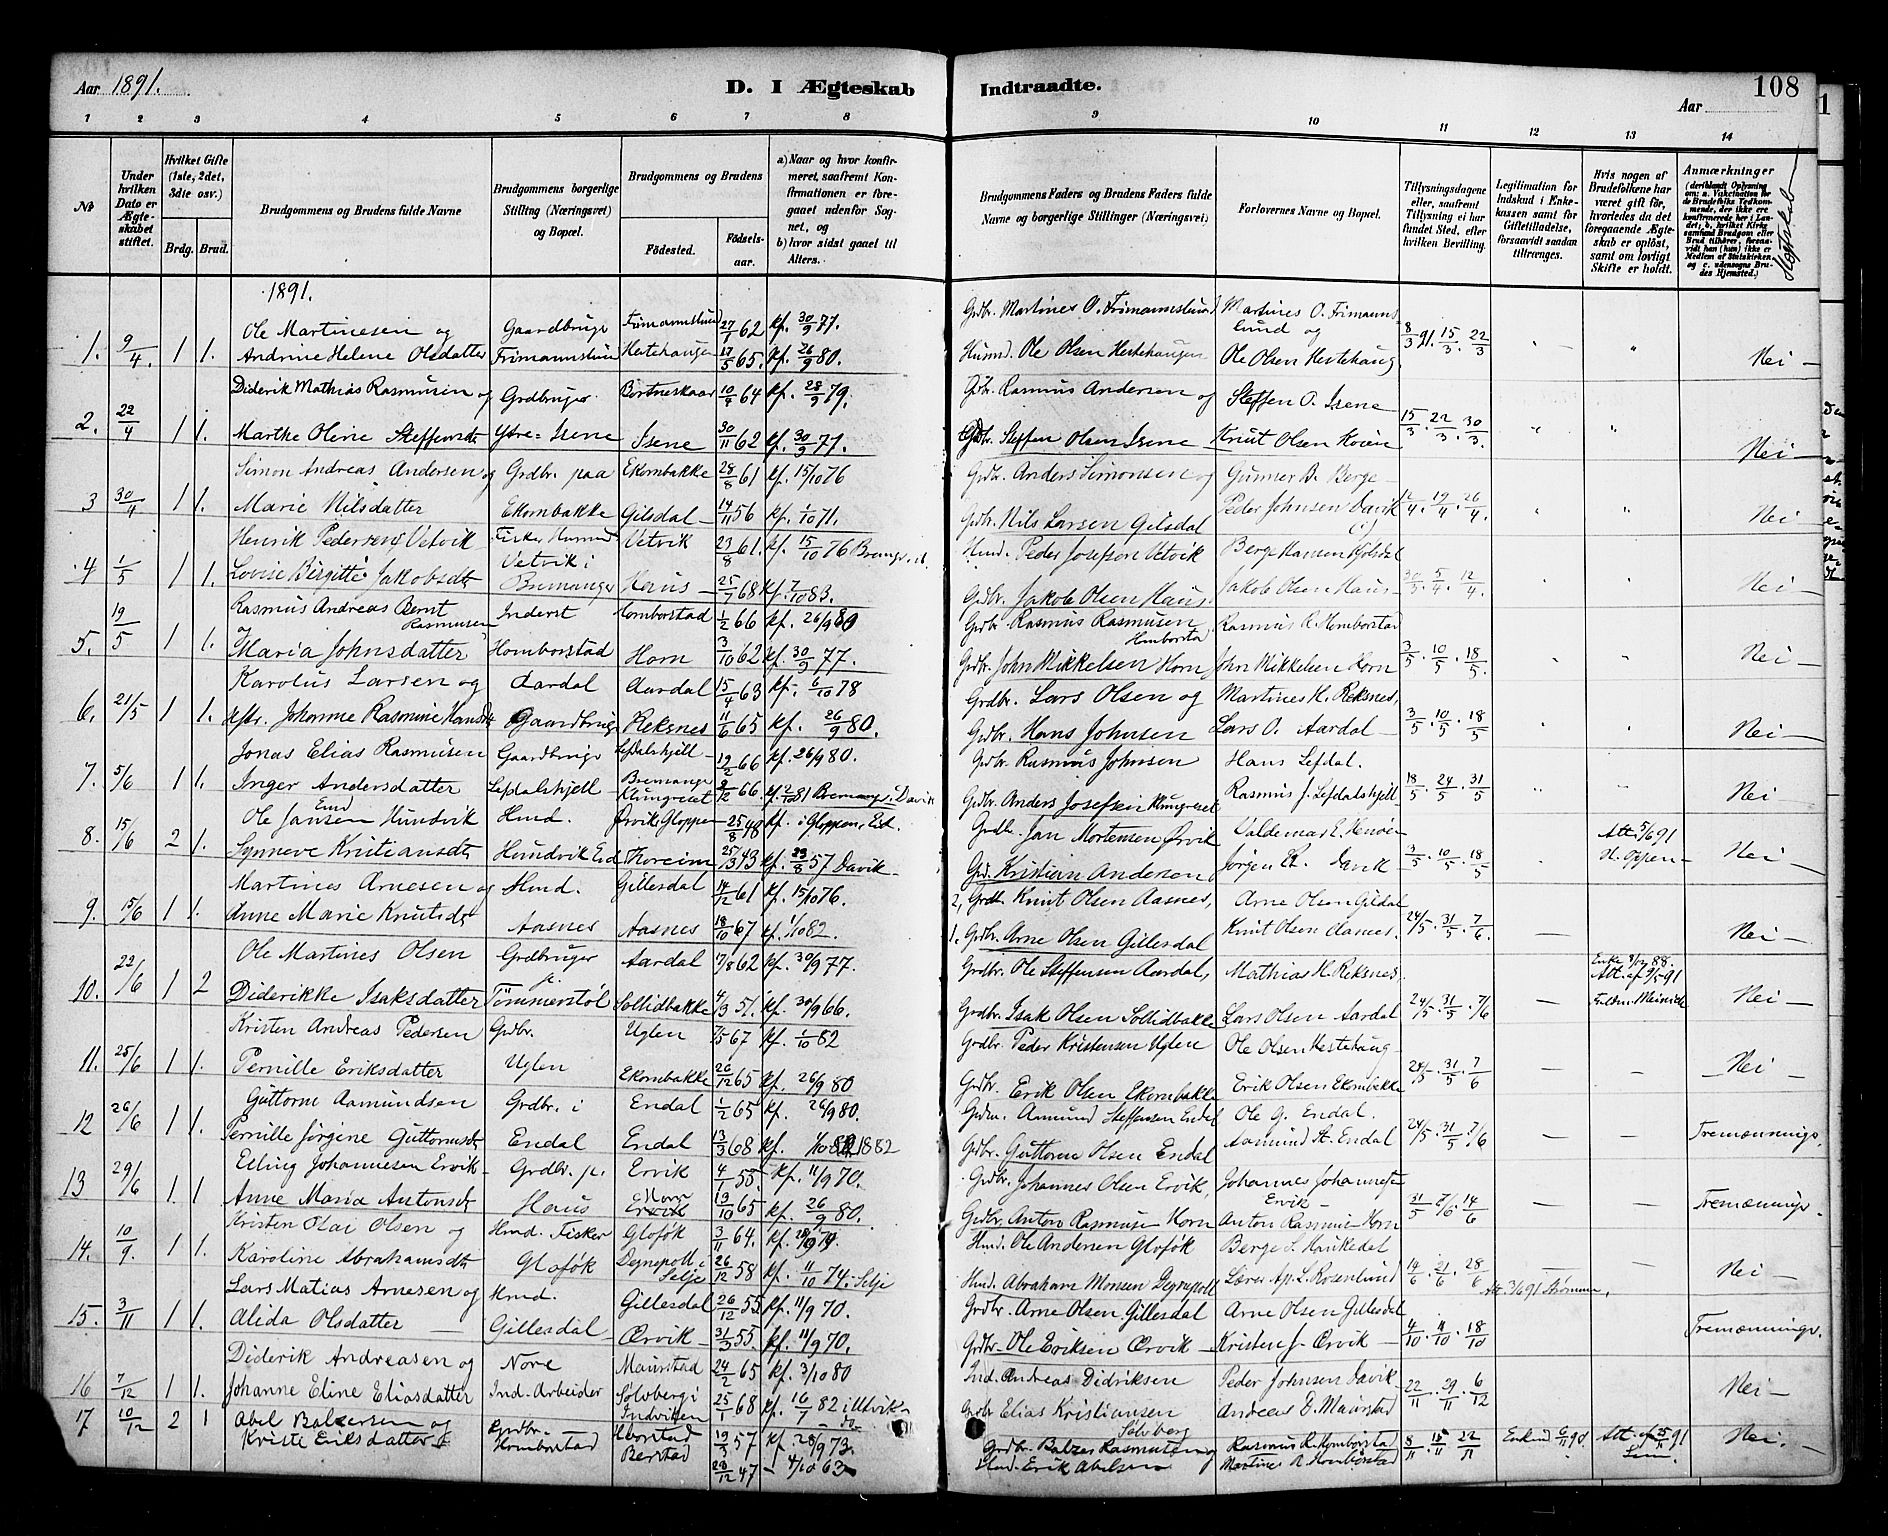 Aar 1891.
D. I Ægteskab Indtraadte.
108
Aar
1 2 3 4 5 6 7 8 9 10 11 12 13 14
No
Under hvilken Dato er Ægteskabet stiftet.
Hvilket Gifte (1ste, 2det, 3die osv.)
Brdg. Brud.
Brudgommens og Brudens fulde Navne
Brudgommens borgerlige Stilling (Næringsvei) og Bopæl.
Brudgommens og Brudens
Fødested. Fødselsaar.
a) Naar og hvor konfirmeret, saafremt Konfirmationen er foregaaet udenfor Sognet, og
b) hvor sidst gaaet til Alters.
Brudgommens Faders og Brudens Faders fulde Navne og borgerlige Stillinger (Næringsvei)
Forlovernes Navne og Bopæl.
Tillysningsdagene eller, saafremt Tillysning ei har fundet Sted, efter hvilken Bevilling.
Legitimation for Indskud i Enkekassen samt for Giftetilladelse, forsaavidt saadan tiltrænges.
Hvis nogen af Brudefolkene har været gift før, hvorledes da det foregaaende Ægteskab er opløst, samt om lovligt Skifte er holdt.
Anmærkninger
Slægtskab
1891.
1. 9/4. 1 1. Ole Martinesen og Gaardbruger Frimannslund 27/1 62 kf. 30/9 77. Grdbr. Martines O. Frimannslund Martines O. Frimannslund og 8/3 91. 15/3. 22/3
Andrine Helene Olsdatter Frimannslund Hestehaugen 13/5 65. kf. 26/9 80. Husmd. Ole Olsen Hestehaugen Ole Olsen Hestehaug Nei —
2. 22/4 1 1. Diderik Mathias Rasmusen og Grdbruger Bortneskaar 10/4 64 kf. 28/9 79. Grdbr. Rasmus Andersen og Steffen O. Isene 15/3. 22/3. 30/3.
Marthe Oline Steffensdt Ytre-Isene Isene 30/11 62 kf. 30/9 77. Grdbr. Steffen Olsen Isene Knut Olsen Nei —
3 30/4 1 1. Simon Andreas Andersen og Grdbr. paa Ekornbakke 28/8 61 kf. 15/10 76 Grdbr. Anders Simonsen og Gunner B. Berge 12/4. 19/4. 26/4.
Marie Nilsdatter Ekornbakke Gilsdal 14/11 56 kf. 1/10 71. Grdbr. Nils Larsen Gilsdal Peder Johnsen Davik Nei —
4 1/5 1 1. Henrik Pedersen Vetvik Fisker Husmd Vetvik 23/8 61. kf. 15/10 76 Hmd. Peder Josefson Vetvik Berge Hansen
Lovise Birgitte Jakobsdt Vetvik i Bremanger Haus 25/7 68 kf. 7/10 83. Grdbr. Jakob Olsen Haus. Jakob Olsen Haus 5/4. 12/4. Nei —
5. 19/5 1 1. Rasmus Andreas Bernt Rasmusen og Inderst Homborstad 1/2 66 kf. 26/9 80 Grdbr. Rasmus Rasmusen Homborsta Rasmus R. Homborstad
Maria Johnsdatter Hombørstad Horn 3/10 62 kf. 30/9 77. Grdbr. John Mikkelsen Horn John Mikkelsen Horn 3/5. 10/5. 18/5. Nei —
6. 21/5 1 1. Karolus Larsen og Aardal Aardal 15/4 63 kf. 6/10 78 Grdbr. Lars Olsen og Martines H. Reksnes,
Johanne Rasmine Hansdt Gaardbrug Reksnes 11/6 65 kf. 26/9 80. Grdbr. Hans Johnsen Lars O. Aardal 3/5. 10/5. 18/5 Nei —
7. 5/6 1 1. Jonas Elias Rasmusen Gaardbruger Lefdalshjell 12/2 66 kf. 26/9 80. Grdbr. Rasmus Johnsen Hans Lefdal.
Inger Andersdatter Lefdalshjell Bremanger 66 kf. 2/10 81 Bremangr. Davik Grdbr. Anders Josefsen Rasmus J. Lefdalshjell 18/5. 24/5. 31/5 Nei —
8. 15/6 2 1. Ole Jansen Hundvik Hmd. Ørvik, Gloppen 25/8 48 kf. i Gloppen, Eid. Grdbr. Jan Mortensen Ørvik Valdemar E. Henøen Att. 5/6 91
Synneve Kristiansdt Hundvik Eid Thoreim 25/3 43 kf. 23/8 57 Davik Grd. Kristian Andersen Jørgen Davik 3/5. 10/5. 18/5 H. Oppen Nei —
9. 15/6 1 1. Martines Arnesen og Hmd. Gillesdal 14/12 61 kf. 15/10 76. 2, Grdb. Knut Olsen Aasnes, Arne Olsen Gilsdal
Anne Marie Knutsdt Aasnes Aasnes 18/10 67 kf. 1/10 82. 1. Grdbr. Arne Olsen Gillesdal Knut Olsen Aasnes. 24/5. 31/5. 7/6. — Nei —
10. 22/6 1 2 Ole Martines Olsen Grdbruger p. Aardal 7/8 62 kf. 30/9 77. Grdbr. Ole Steffensen Aardal, Mathias H. Reksnes, Att. af 91
Diderikke Isaksdatter Tømmerstøl Sollidbakke 4/3 51. kf. 30/9 66. Grdbr. Isak Olsen Sollidbakke Lars Olsen Aardal 24/5. 31/5. 7/6 — Nei —
11. 25/6 1 1. Kristen Andreas Pedersen Grdbr. Uglen 7/5 67 kf. 1/10 82 Grdbr. Peder Kristensen Uglen Ole Olsen Hestehaug
Pernille Eriksdatter Uglen Ekornbakke 26/12 65 kf. 26/9 80 Grdbr. Erik Olsen Ekornbakke Erik Olsen Ekornbakke 24/5. 31/5. 7/6 — — Nei —
12 26/6 1 1. Guttorm Aamundsen Grdbr. i Endal 1/2 65 kf. 26/9 80. Aamund Steffensen Endal Ole G. Endal.
Pernille Jørgine Guttormsdt Endal Endal 13/3 68 kf. 1882 Grdbr. Guttorm Olsen Endal Aamund St. Endal 24/5. 31/5. 7/6 — — Tremænninge.
13 29/6 1 1 Elling Johannesen Ervik Grdbr. p. Ervik 4/1 55. kf. 11/9 70. Grdbr. Johannes Olsen Ervik, Johannes Johannesen Ervik
Anne Maria Antonsdt Haus Horn 19/10 65 kf. 26/9 80. Grdbr. Anton Rasmusen Horn Anton Rasmusen Horn 31/5 7/6. 14/6 — — Tremænninge.
14. 10/9. 1 1. Kristen Olai Olsen og Hmd. Fisker Gloføk 3/11 64. kf. 79. Hmd. Ole Andersen Gloføk Berge S. Haukedal
Karoline Abrahamsdt Gloføk Degnepoll i Selje 26/12 58 kf. 11/10 74. Selje Hmd. Abraham Monsen Degnepoll Lærer Ap. L. Rosenlund 14/6. 21/6. 28/6 — Nei —
Att. 3/6 91 Strømmen,
15. 3/11 1 1. Lars Matias Arnesen og Hmd. Gillesdal 26/12 55 kf. 11/9 70. Grdbr. Arne Olsen Gillesdal Arne Olsen Gillesdal
Alida Olsdatter — Gillesdal Ørvik 31/3 55. kf. 11/9 70. Grdbr. Ole Eriksen Ørvik Kristen J. Ørvik 4/10. 11/10. 18/10 Tremænninge.
16 7/12 1 1. Diderik Andreasen og Nore Maurstad 24/2 65 kf. 3/10 80 Ind. Andreas Didriksen Peder Johnsen Davik
Johanne Eline Eliasdatter Ind. Arbeider Sølvberg i Indviken 25/1 68 kf. 16/7 82 i Utvik Grdbr Elias Kristiansen Sølvberg Andreas D. Maurstad 22/11. 29/11. 6/12 Nei —
17 10/12 2 1 Abel Balzersen og Grdbr. Hborstad 19/3 57 kf. 28/9 73. Grdbr. Balzer Rasmusen og Rasmus R. Hombørstad 8/11 15/11 22/11 Att. af 91 Nei.
Kriste Eriksdatter Hombørstad Berstad 23/12 47 4/10 63 Hmd. Erik Abelsen Martines R. Hombørstad